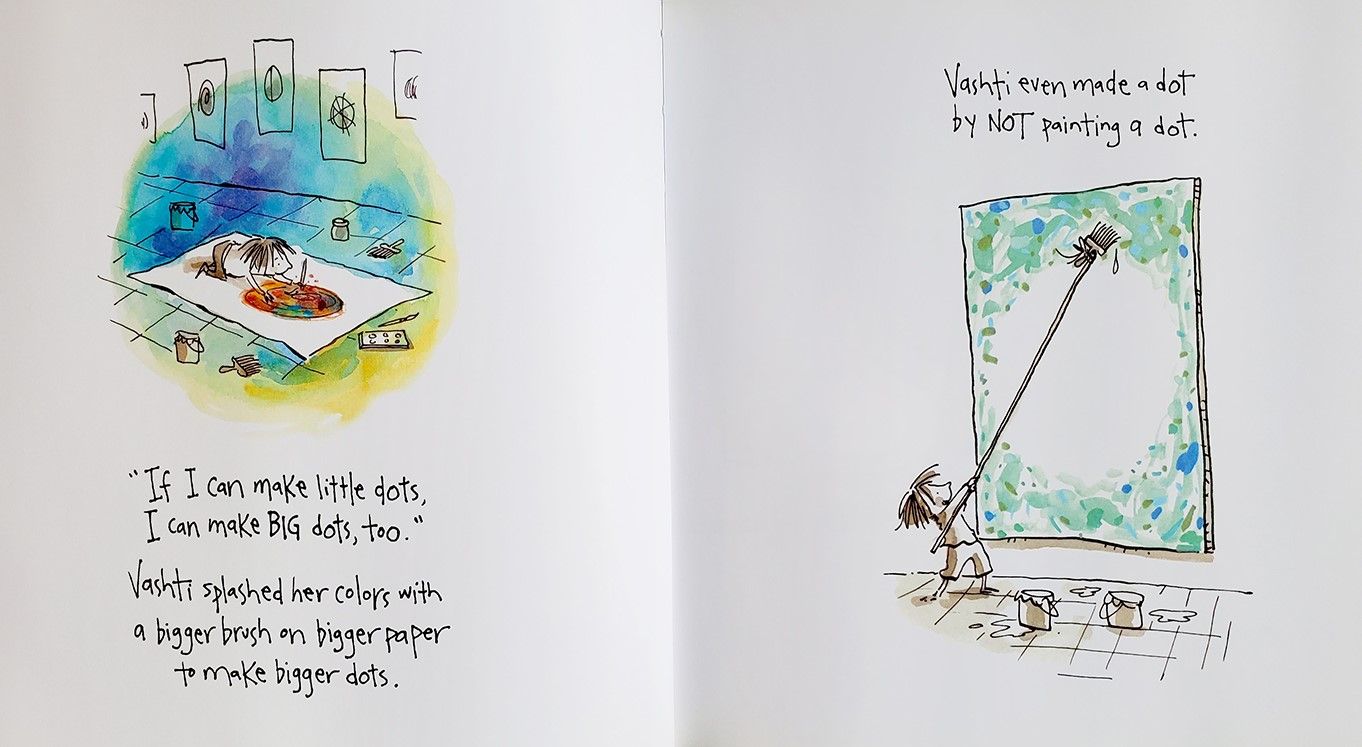 "If I can make little dots,
I can make BIG dots, too."
Vashti splashed her colors with
a bigger brush on bigger paper
to make bigger dots.
Vashti even made a dot
by NOT painting a dot.